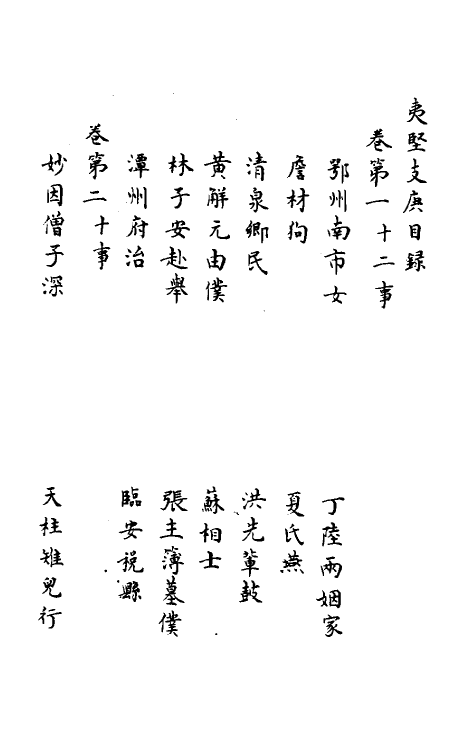 夷堅支庚目錄
卷第一十二事
鄂州南市女 丁陸兩姻家
詹村狗 夏氏燕
清泉鄉民 洪先輩鼓
黃解元田僕 蘇相士
林子安赴舉 張主簿墓僕
潭州府治 臨安稅縣
卷第二十事
妙因僧子深 天柱雉兒行